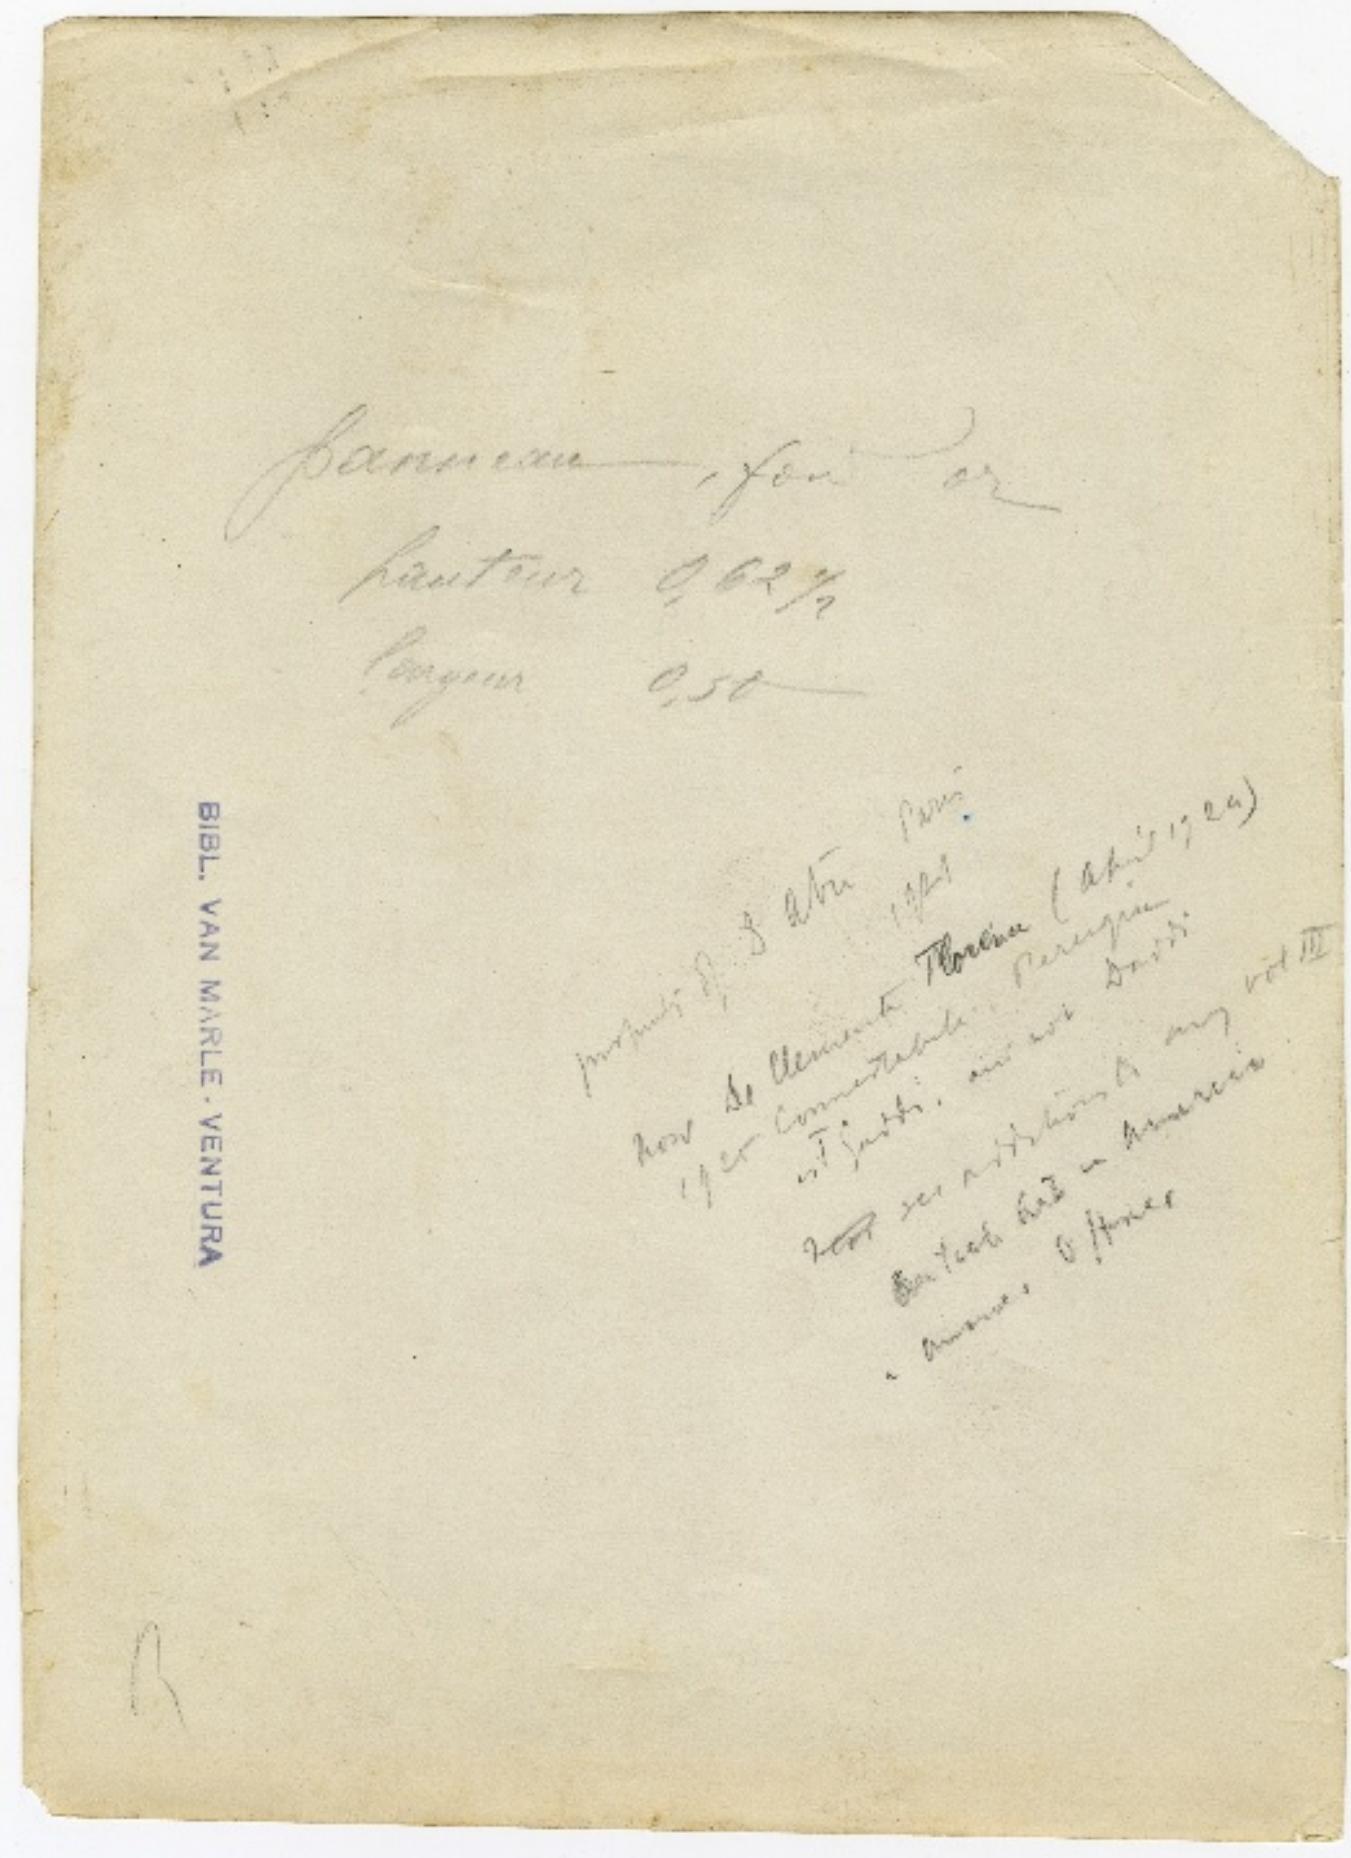 panneau, fond or
hauteur 0,62 1/2
largeur 0,50
Paris
property of S
1921
now De Clemente Florence (April 1924)
1925 Connestabile, Perugia
is T Gaddi. and not Daddi
see additions to my vol III
in America
Offner
BIBL. VAN MARLE - VENTURA
R